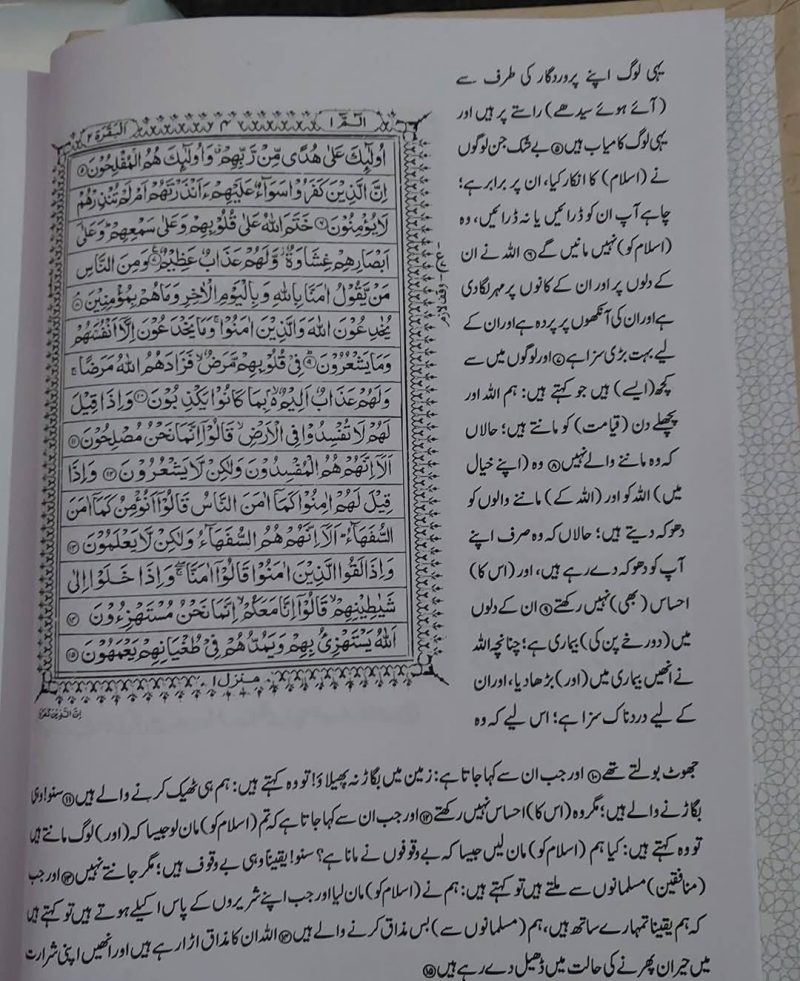 یہی لوگ اپنے پروردگار کی طرف سے
(آئے ہوئے سیدھے) راستے پر ہیں اور
یہی لوگ کامیاب ہیں ⑤ بے شک جن لوگوں
نے (اسلام) کا انکار کیا، ان پر برابر ہے؛
چاہے آپ ان کو ڈرائیں یا نہ ڈرائیں، وہ
(اسلام کو) نہیں مانیں گے ⑥ اللہ نے ان
کے دلوں پر اور ان کے کانوں پر مہر لگادی
ہے اور ان کی آنکھوں پر پردہ ہے اور ان کے
لیے بہت بڑی سزا ہے ⑦ اور لوگوں میں سے
کچھ (ایسے) ہیں جو کہتے ہیں: ہم اللہ اور
پچھلے دن (قیامت) کو مانتے ہیں؛ حالاں
کہ وہ ماننے والے نہیں ⑧ وہ (اپنے خیال
میں) اللہ کو اور (اللہ کے) ماننے والوں کو
دھوکہ دیتے ہیں؛ حالاں کہ وہ صرف اپنے
آپ کو دھوکہ دے رہے ہیں، اور (اس کا)
احساس (بھی) نہیں رکھتے ⑨ ان کے دلوں
میں (دورخے پن کی) بیماری ہے؛ چنانچہ اللہ
نے انھیں بیماری میں (اور) بڑھا دیا، اور ان
کے لیے دردناک سزا ہے؛ اس لیے کہ وہ
الٓمّٓ ١ ٣ البقرة ٢
اُولٰٓئِكَ عَلٰى هُدًى مِّنْ رَّبِّهِمْ ۙ وَاُولٰٓئِكَ هُمُ الْمُفْلِحُوْنَ ⑤
اِنَّ الَّذِيْنَ كَفَرُوْا سَوَآءٌ عَلَيْهِمْ ءَاَنْذَرْتَهُمْ اَمْ لَمْ تُنْذِرْهُمْ
لَا يُؤْمِنُوْنَ ⑥ خَتَمَ اللّٰهُ عَلٰى قُلُوْبِهِمْ وَعَلٰى سَمْعِهِمْ ؕ وَعَلٰٓى
اَبْصَارِهِمْ غِشَاوَةٌ ۫ وَّلَهُمْ عَذَابٌ عَظِيْمٌ ⑦ وَمِنَ النَّاسِ
مَنْ يَّقُوْلُ اٰمَنَّا بِاللّٰهِ وَبِالْيَوْمِ الْاٰخِرِ وَمَا هُمْ بِمُؤْمِنِيْنَ ⑧
يُخٰدِعُوْنَ اللّٰهَ وَالَّذِيْنَ اٰمَنُوْا ۚ وَمَا يَخْدَعُوْنَ اِلَّاۤ اَنْفُسَهُمْ
وَمَا يَشْعُرُوْنَ ⑨ فِيْ قُلُوْبِهِمْ مَّرَضٌ ۙ فَزَادَهُمُ اللّٰهُ مَرَضًا ۚ
وَلَهُمْ عَذَابٌ اَلِيْمٌۢ ۙ بِمَا كَانُوْا يَكْذِبُوْنَ ⑩ وَاِذَا قِيْلَ
لَهُمْ لَا تُفْسِدُوْا فِي الْاَرْضِ ۙ قَالُوْٓا اِنَّمَا نَحْنُ مُصْلِحُوْنَ ⑪
اَلَاۤ اِنَّهُمْ هُمُ الْمُفْسِدُوْنَ وَلٰكِنْ لَّا يَشْعُرُوْنَ ⑫ وَاِذَا
قِيْلَ لَهُمْ اٰمِنُوْا كَمَاۤ اٰمَنَ النَّاسُ قَالُوْٓا اَنُؤْمِنُ كَمَاۤ اٰمَنَ
السُّفَهَآءُ ؕ اَلَاۤ اِنَّهُمْ هُمُ السُّفَهَآءُ وَلٰكِنْ لَّا يَعْلَمُوْنَ ⑬
وَاِذَا لَقُوا الَّذِيْنَ اٰمَنُوْا قَالُوْٓا اٰمَنَّا ۚ وَاِذَا خَلَوْا اِلٰى
شَيٰطِيْنِهِمْ ۙ قَالُوْٓا اِنَّا مَعَكُمْ ۙ اِنَّمَا نَحْنُ مُسْتَهْزِءُوْنَ ⑭
اَللّٰهُ يَسْتَهْزِئُ بِهِمْ وَيَمُدُّهُمْ فِيْ طُغْيَانِهِمْ يَعْمَهُوْنَ ⑮
منزل ١
جھوٹ بولتے تھے ⑩ اور جب ان سے کہا جاتا ہے: زمین میں بگاڑ نہ پھیلاؤ! تو وہ کہتے ہیں: ہم ہی ٹھیک کرنے والے ہیں ⑪ سنو! وہی
بگاڑنے والے ہیں؛ مگر وہ (اس کا) احساس نہیں رکھتے ⑫ اور جب ان سے کہا جاتا ہے کہ تم (اسلام کو) مان لو جیسا کہ (اور) لوگ مانتے ہیں
تو وہ کہتے ہیں: کیا ہم (اسلام کو) مان لیں جیسا کہ بے وقوفوں نے مانا ہے؟ سنو! یقیناً وہی بے وقوف ہیں؛ مگر جانتے نہیں ⑬ اور جب
(منافقین) مسلمانوں سے ملتے ہیں تو کہتے ہیں: ہم نے (اسلام کو) مان لیا اور جب اپنے شریروں کے پاس اکیلے ہوتے ہیں تو کہتے ہیں
کہ ہم یقیناً تمہارے ساتھ ہیں، ہم (مسلمانوں سے) بس مذاق کرنے والے ہیں ⑭ اللہ ان کا مذاق اڑا رہے ہیں اور انھیں اپنی شرارت
میں حیران پھرنے کی حالت میں ڈھیل دے رہے ہیں ⑮